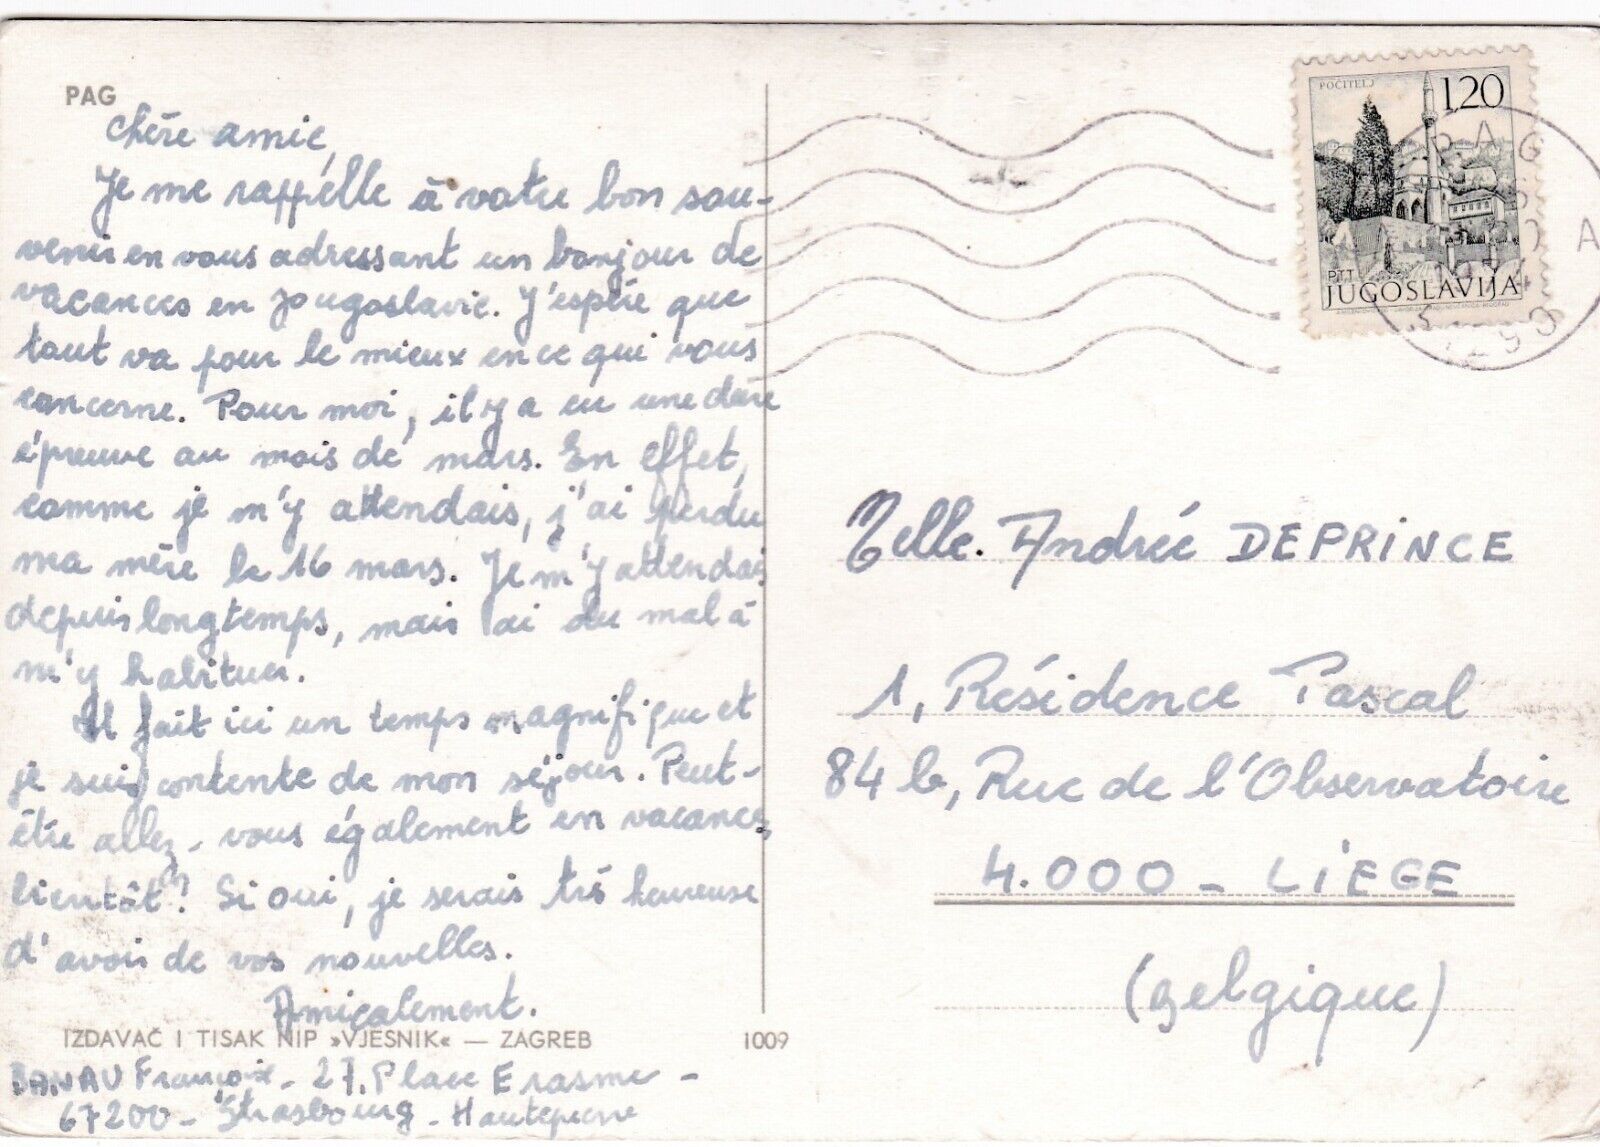 PAG
Chère amie,
Je me rappelle à votre bon sou-
venir en vous adressant un bonjour de
vacances en Yougoslavie. J'espère que
tout va pour le mieux en ce qui vous
concerne. Pour moi, il y a eu une dure
épreuve au mois de mars. En effet,
comme je m'y attendais, j'ai perdu
ma mère le 16 mars. Je m'y attendais
depuis longtemps, mais j'ai du mal à
m'y habituer.
Il fait ici un temps magnifique et
je suis contente de mon séjour. Peut-
être allez-vous également en vacances
bientôt? Si oui, je serais très heureuse
d'avoir de vos nouvelles.
Amicalement.
IZDAVAČ I TISAK NIP »VJESNIK« — ZAGREB 1009
Françoise - 27, Place Erasme -
67200 - Strasbourg - Hautepierre
POČITELJ 1,20
PTT
JUGOSLAVIJA
PAG
Melle. Andrée DEPRINCE
1, Résidence Pascal
84 b, Rue de l'Observatoire
4.000 - LIÈGE
(Belgique)